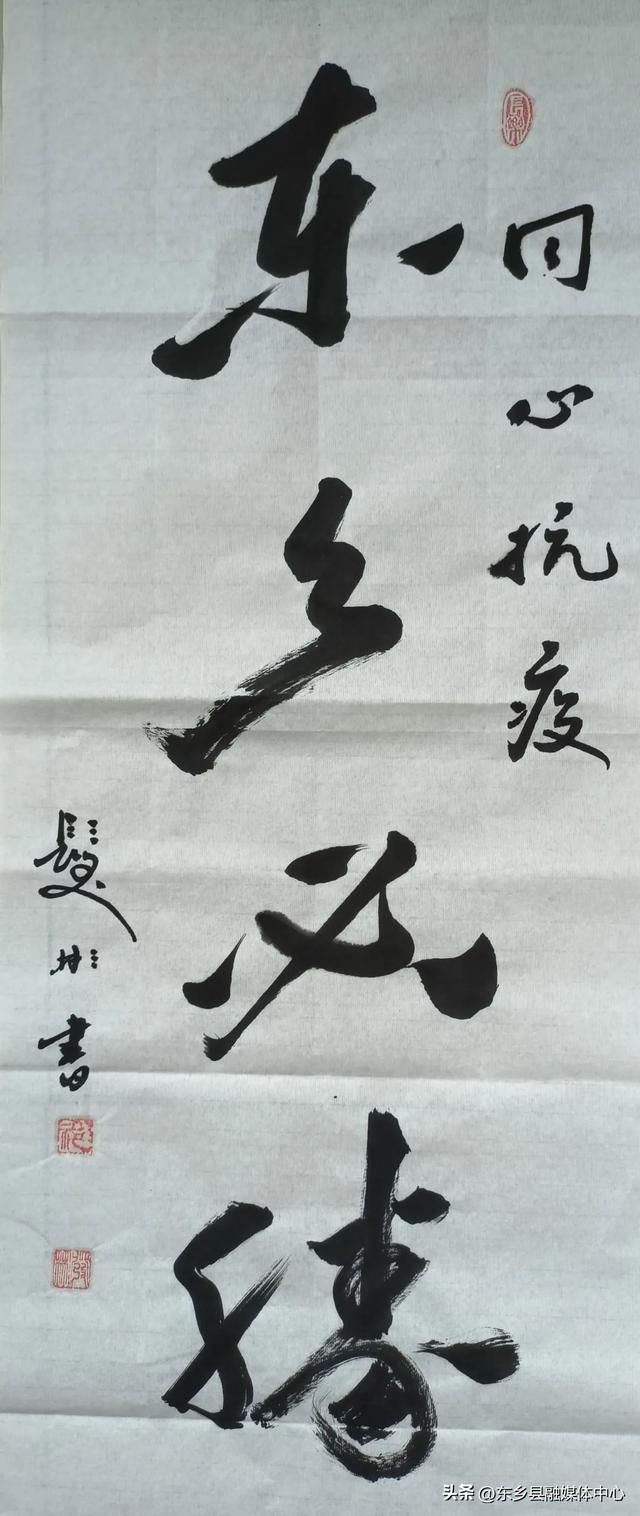 同心抗疫
东乡必胜
髮彬書
头条 @东乡县融媒体中心